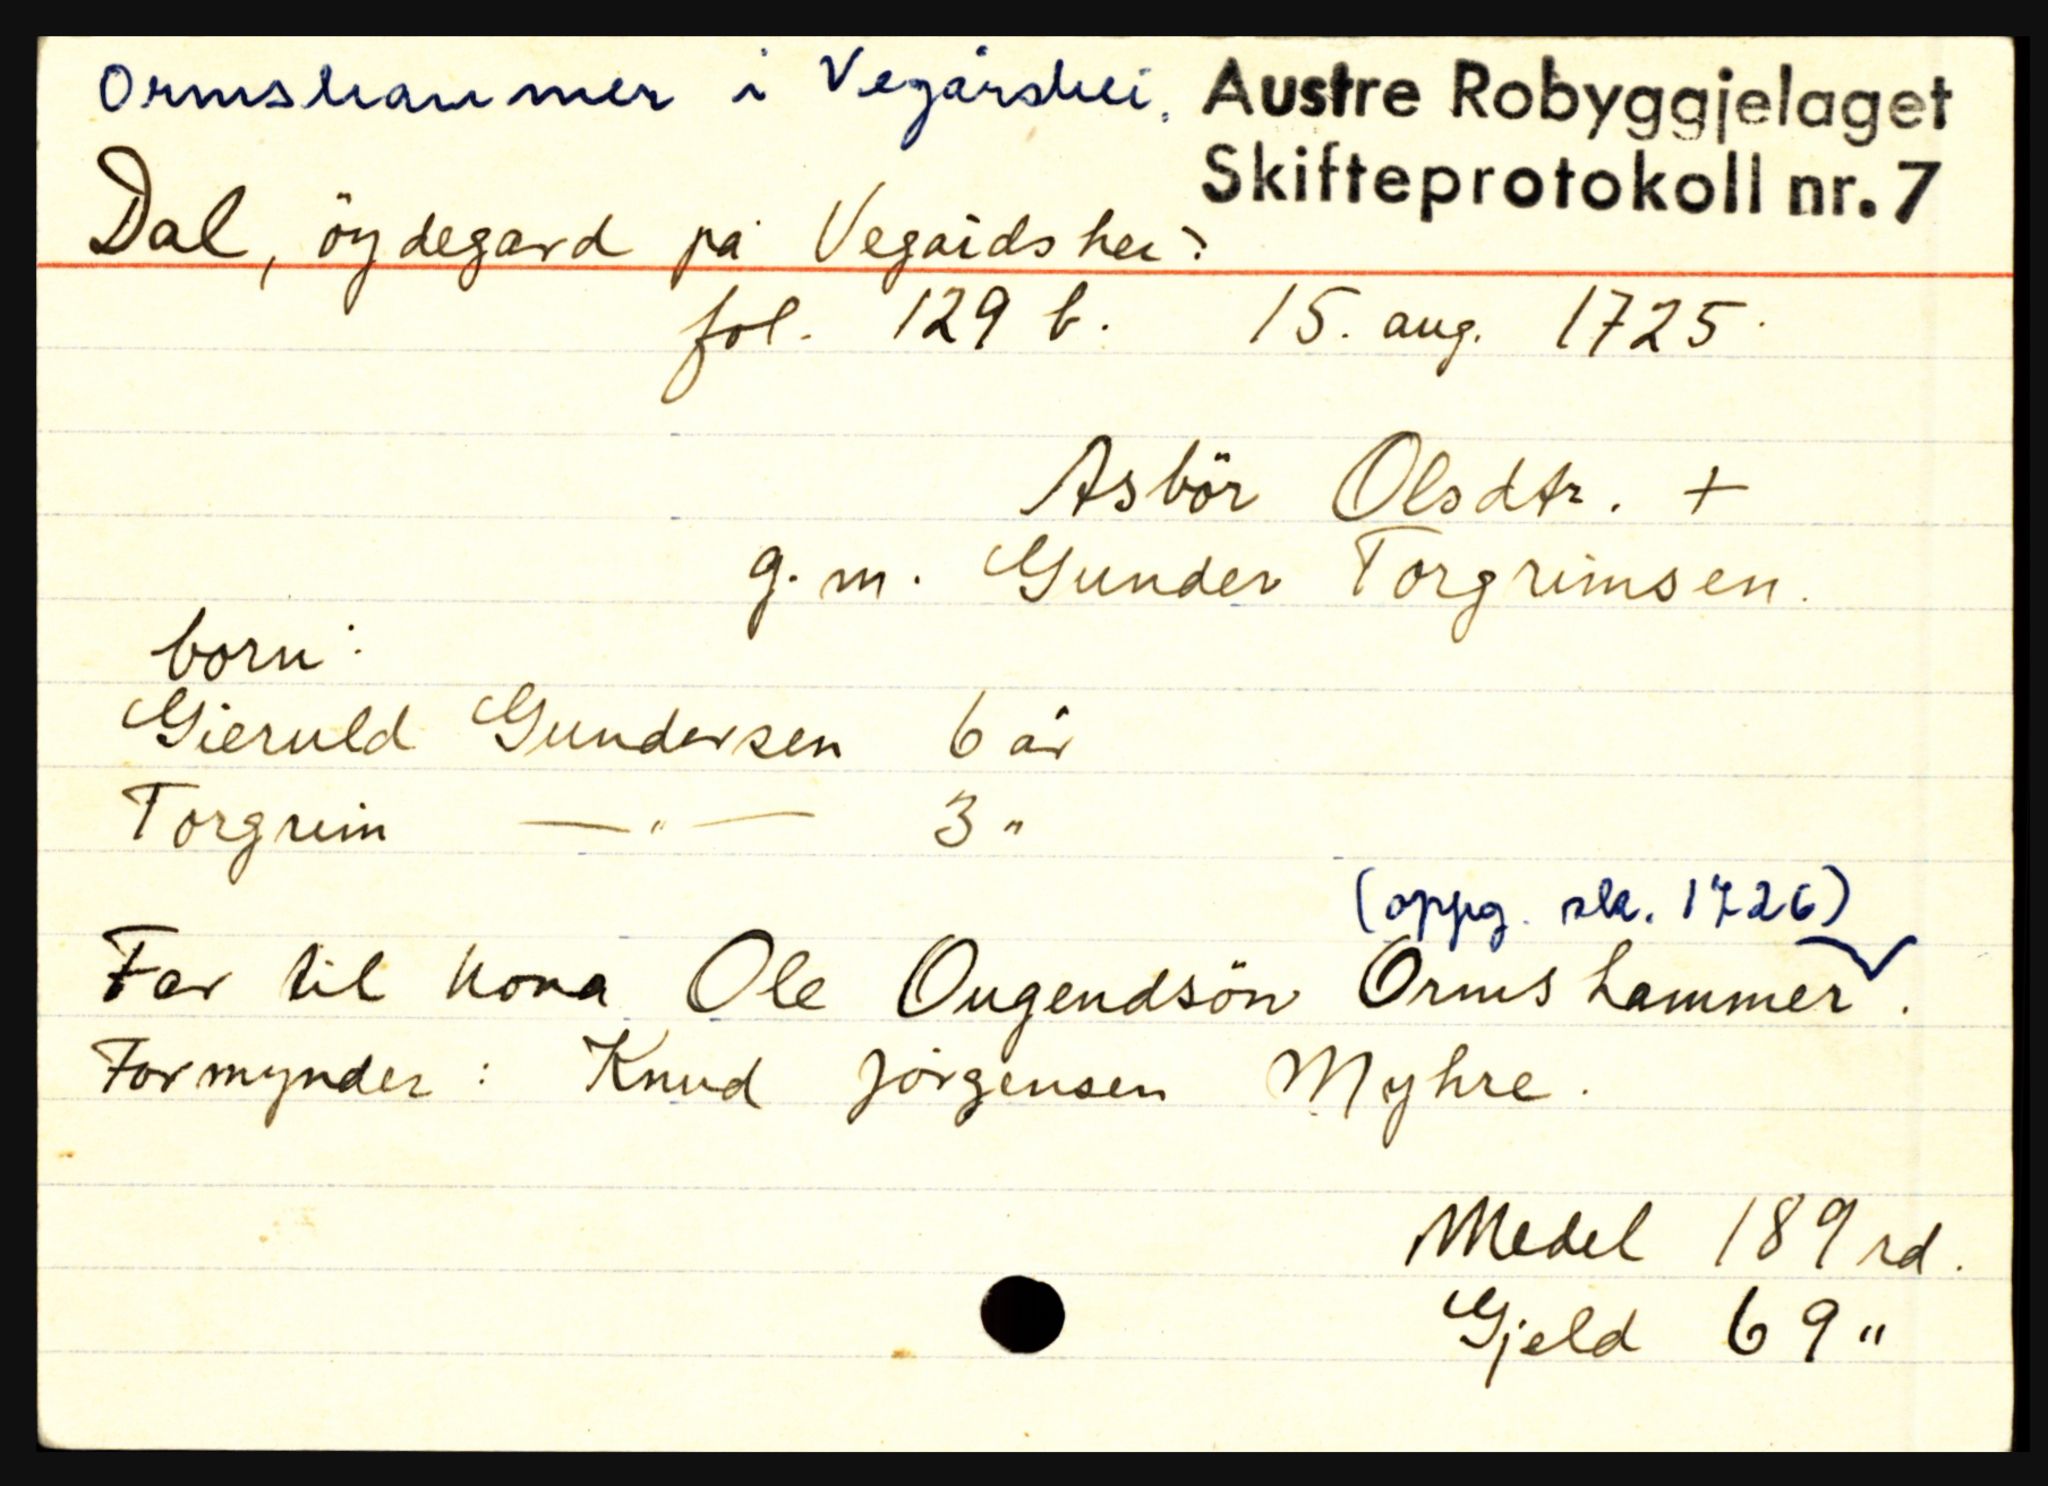 Ormshammer i Vegårshei.
Austre Robyggjelaget
Skifteprotokoll nr. 7
Dal, öydegard på Vegaidshei?
fol. 129 b. 15. aug. 1725.
Asbör Olsdtr. +
g. m. Gunder Torgrimsen.
born:
Gieruld Gundersen 6 år
Torgrim —"— 3 "
(oppg. sk. 1726)
Far til kona Ole Ougendsön Ormshammer.
Formynder: Knud Jörgensen Myhre.
Medel 189 rd.
Gjeld 69 "